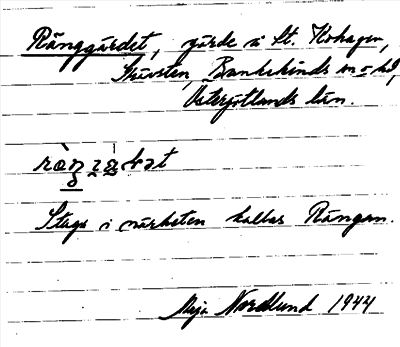 Ränggärdet, gärde i St. Kohagen,
Skärsten, Bankekinds sn o hd,
Östergötlands län.
Stuga i närheten kallas Rängan.
Maja Nordlund 1944